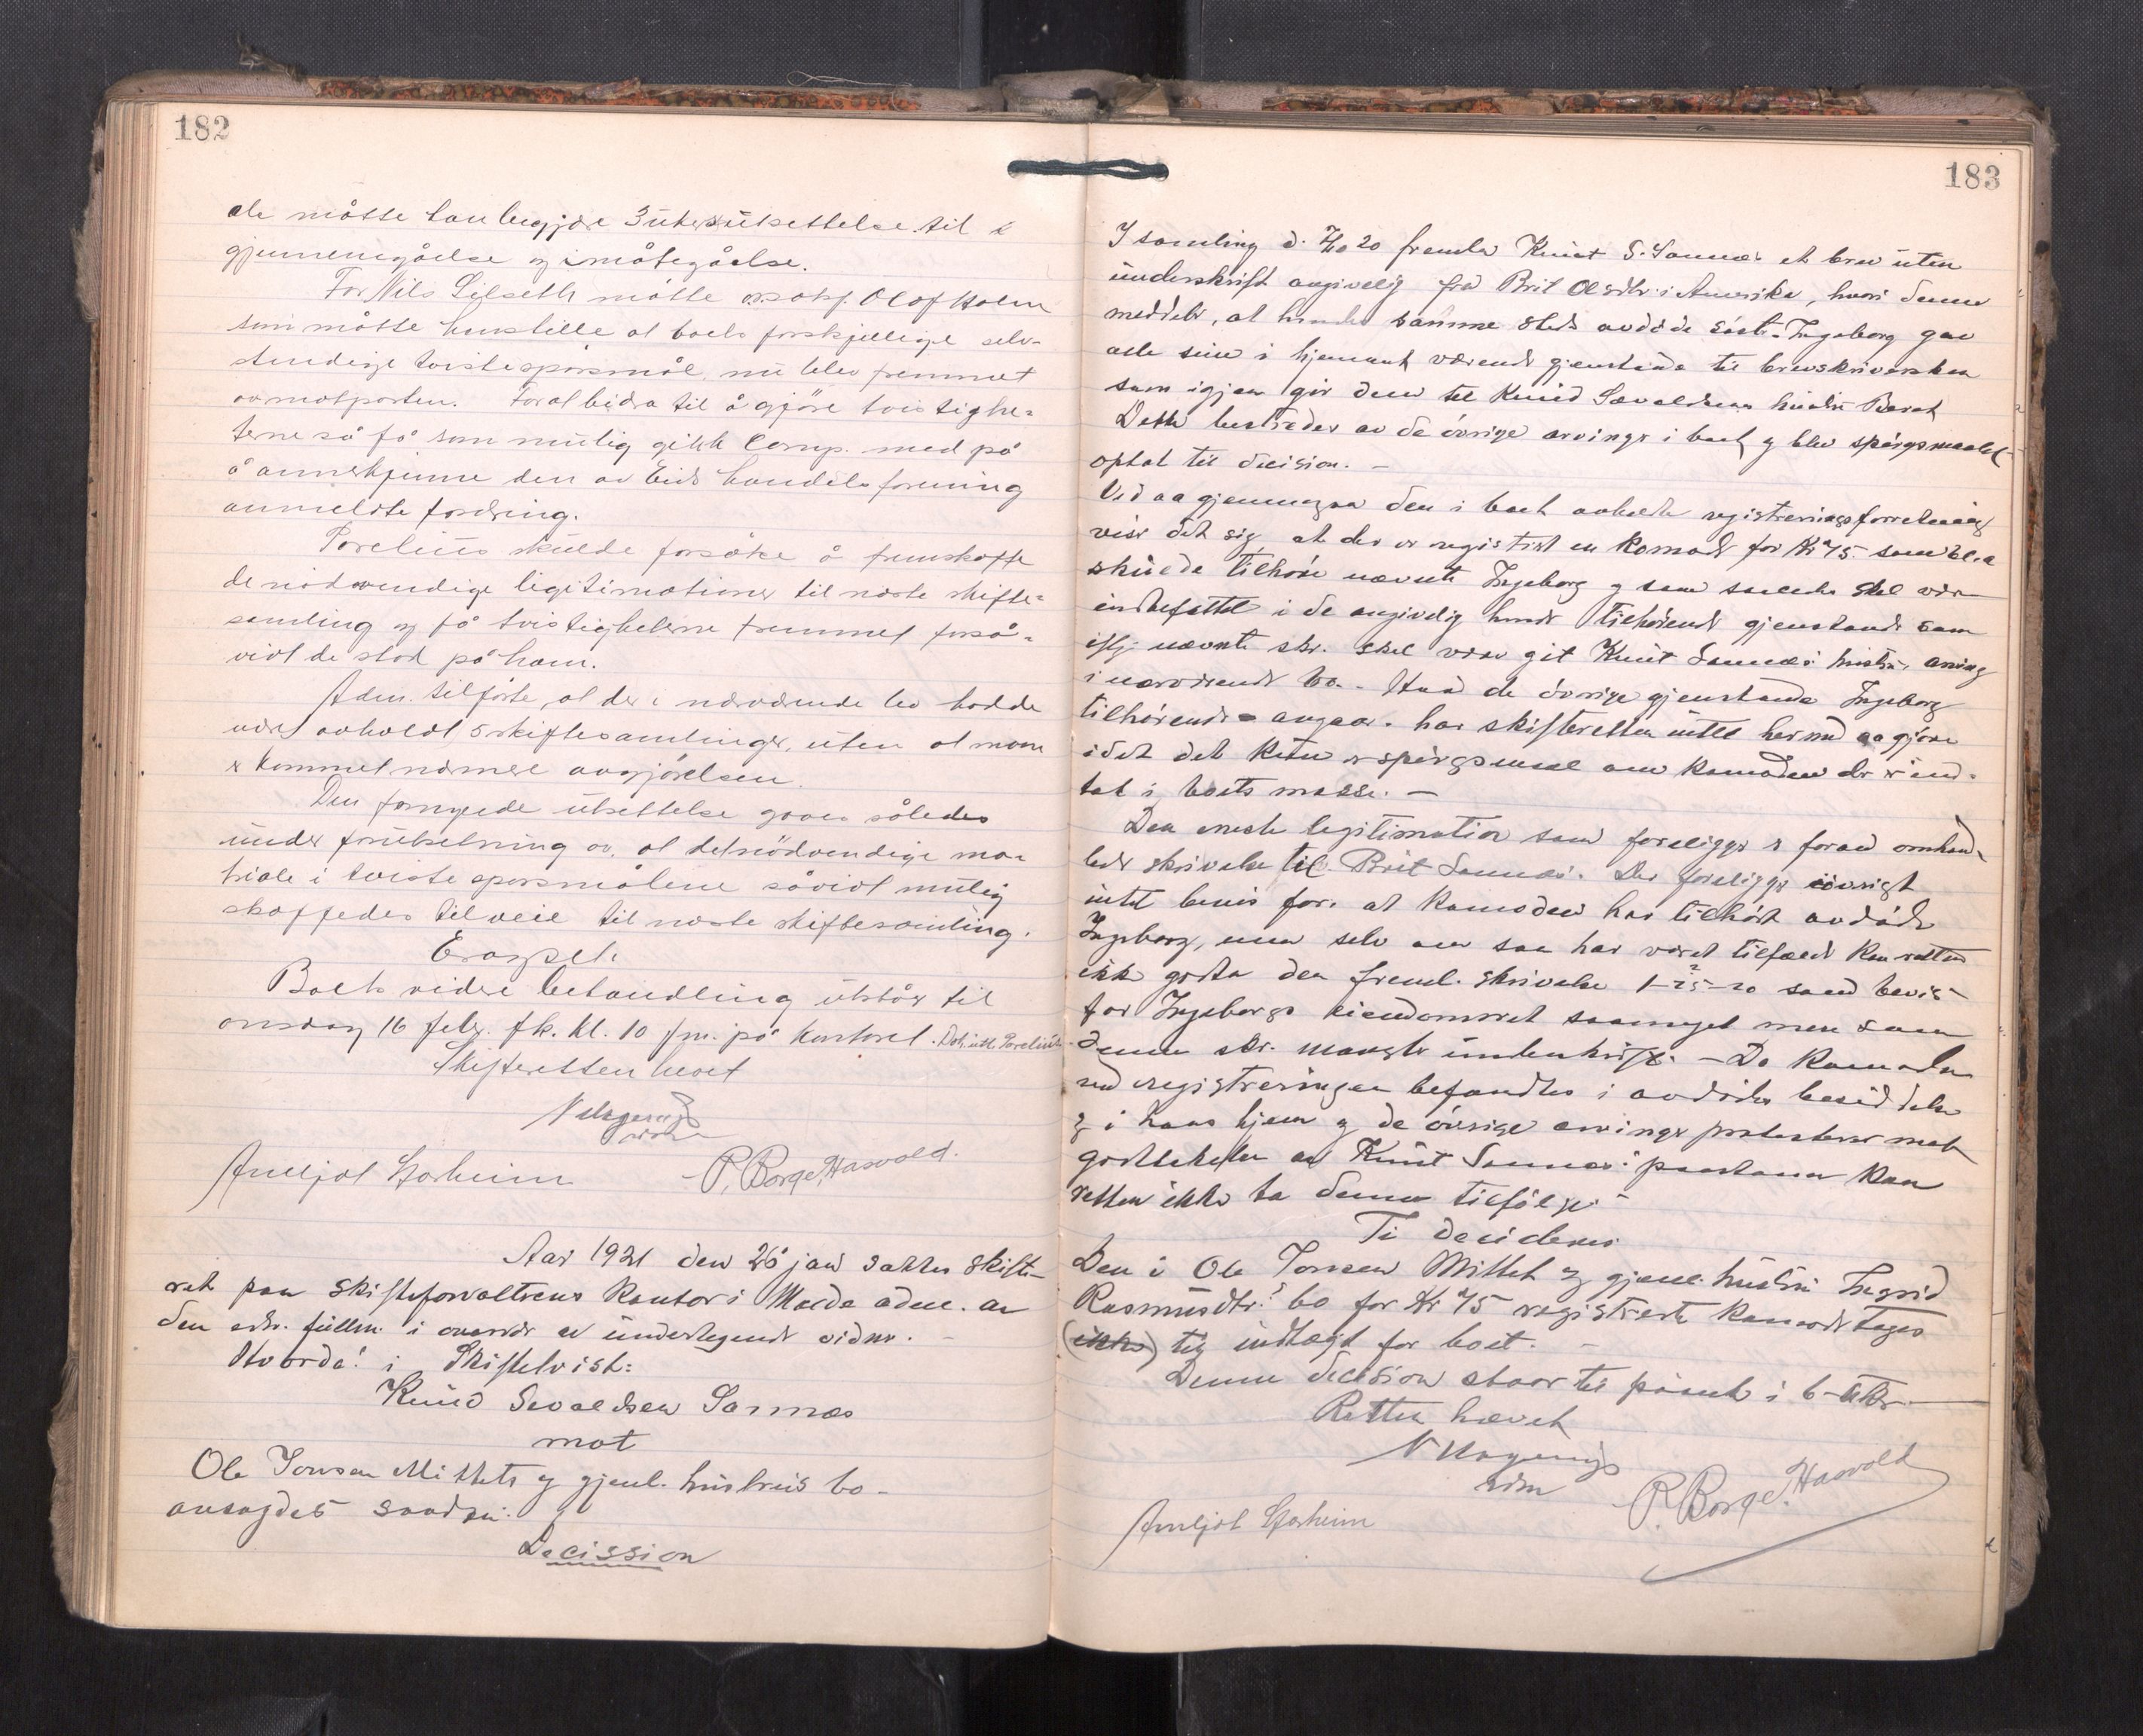 182
de måtte han begjære 3 ukers utsettelse til
gjennemgåelse og imøtegåelse.
For Nils Lilseth møtte o.r.sakf. Olaf Holm
som måtte henstille at boets forskjellige selv-
stendige tvistespørsmål nu blev fremmet
av motparten. For at bidra til å gjøre tvistighe-
terne så få som mulig gikk Comp. med på
å annerkjenne den av Eids handelsforening
anmeldte fordring.
Porelius skulde forsøke å fremskaffe
de nødvendige legitimationer til næste skifte-
samling og få tvistighelerne fremmet forså-
vidt de stod på ham.
Adm. tilførte, at der i nærværende bo hadde
været avholdt 5 skiftesamlinger, uten at man
er kommet nærmere avgjørelsen.
Den fornyede utsettelse gaves således
under forutsetning av, at det nødvendige ma-
triale i tvistespørsmålene såvidt mulig
skaffedes tilveie til næste skiftesamling.
Eragset.
Boets videre behandling utstår til
onsdag 16 febr. fk. kl. 10 fm. på kontoret.
Skifteretten hævet
Arnljot Storheim P. Borge. Hasvold.
Aar 1921 den 26 jan sattes skifte-
ret paa skifteforvalterens kontor i Molde adm. av
den edsv. fuldm. i overvær av underlegende vidner.
Hvorda! i Skiftetvist:
Knud Sevaldsen Sannæs
mot
Ole Jonsen Mittets og gjenl. hustrus bo
avsagdes saadan
Decission
183
I samling d. 7/10 20 fremla Knut S. Sannæs et brev uten
underskrift angivelig fra Brit Olsdtr. i Amerika, hvori denne
meddeler, at hendes samme steds avdøde søster Ingeborg gav
alle sine i hjemmet værende gjenstande til brevskriversken
som igjen gir dem til Knud Sevaldsens hustru Beret
Dette bestrides av de øvrige arvinger i boet og blev spørgsmaalet
optat til decision. –
Ved aa gjennemgaa den i boet avholdte registreringsforretning
viser det sig at der er registrert en komode for Kr 75. som bl.a
skulde tilhøre nævnte Ingeborg og som saaledes skal være
indbefattet i de angivelig hende tilhørende gjenstande som
iflg. nævnte skr. skal være git Knut Sannæs' hustru, arving
i nærværende bo. – Hvad de øvrige gjenstande Ingeborg
tilhørende angaar. har skifteretten intet hermed aa gjøre
idet det kun er spørgsmaal om komoden der er ind-
tat i boets masse. –
Den eneste legitimation som foreligger er foran omhand-
lede skrivelse til Brit Sannæs. Der foreligger iøvrigt
intet bevis for at komoden har tilhørt avdøde
Ingeborg, men selv om saa har været tilfældet kan retten
ikke godta den freml. skrivelse som bevis
for Ingeborgs eiendomsret saameget mere som
denne skr. mangler underskrift. – Da komoden
ved registreringen befandtes i avdødes besiddelse
og i hans hjem og de øvrige arvinger protesterer mot
godtagelsen av Knut Sannæs' paastand kan
retten ikke ta denne tilfølge. –
Ti decideres
Den i Ole Jonsen Mittet og gjenl. hustru Ingrid
Rasmusdtr.' bo for Kr 75 registrerte komode tages
(ikke) til indtægt for boet. –
Denne decision staar til paaank i 6 uker
Retten hævet
Arnljot Storheim P. Borge. Hasvold